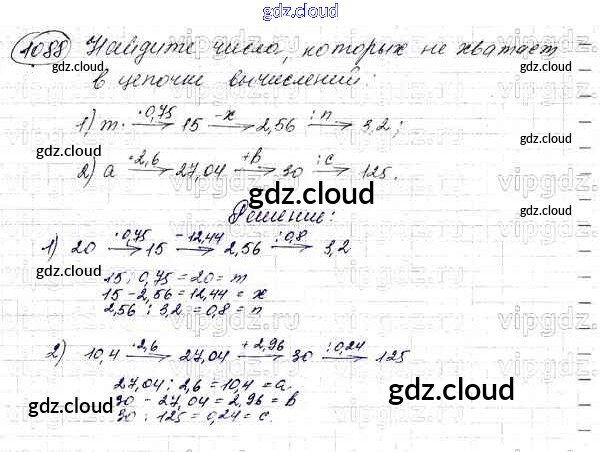 gdz.cloud
1088 Найдите числа, которых не хватает
в цепочке вычислений:
1) m ·0,75→ 15 -x→ 2,56 :n→ 3,2;
2) a ·2,6→ 27,04 +b→ 30 :c→ 125.
Решение:
1) 20 ·0,75→ 15 -12,44→ 2,56 :0,8→ 3,2
15 : 0,75 = 20 = m
15 - 2,56 = 12,44 = x
2,56 : 3,2 = 0,8 = n
2) 10,4 ·2,6→ 27,04 +2,96→ 30 :0,24→ 125
27,04 : 2,6 = 10,4 = a.
30 - 27,04 = 2,96 = b
30 : 125 = 0,24 = c.
gdz.cloud
gdz.cloud
gdz.cloud
gdz.cloud
gdz.cloud
gdz.cloud
gdz.cloud
gdz.cloud
gdz.cloud
gdz.cloud